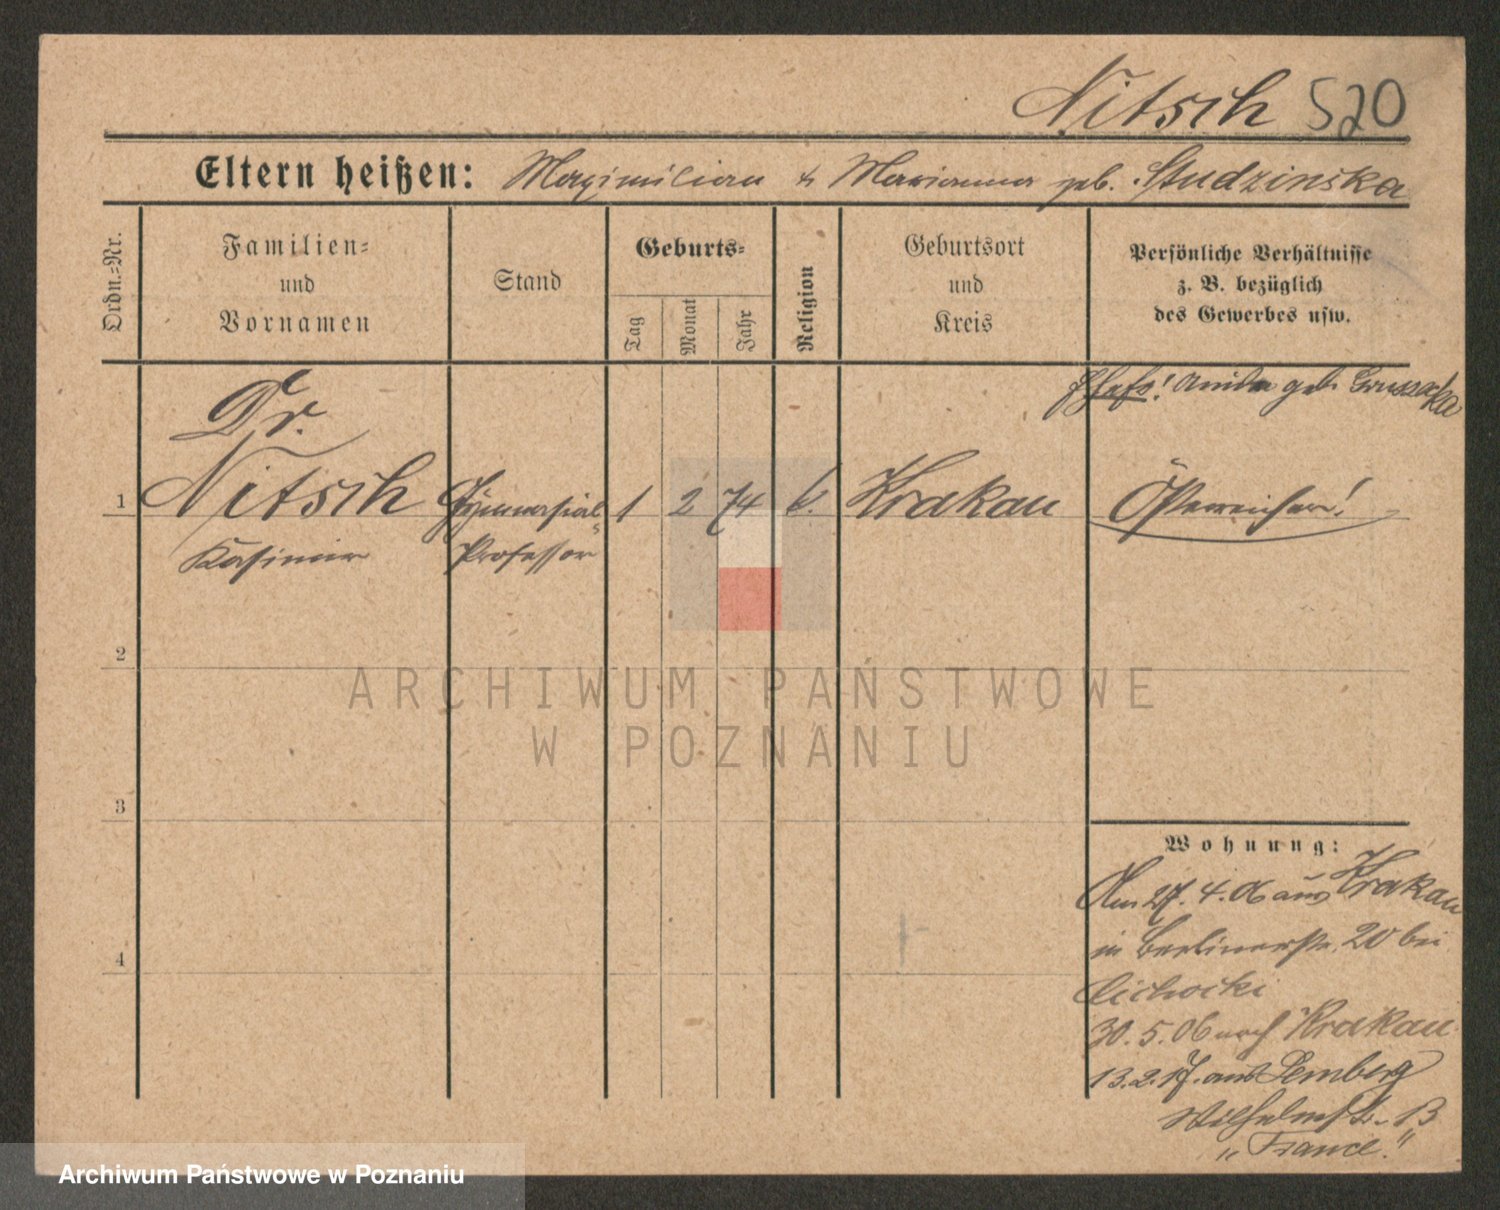 Nitsch 520
Eltern heißen: Maximilian & Marianna geb. Studzinska
Ordn.-Nr.
Familien-
und
Vornamen
Stand
Geburts-
Tag
Monat
Jahr
Religion
Geburtsort
und
Kreis
Persönliche Verhältnisse
z. B. bezüglich
des Gewerbes usw.
geb.
Dr.
1 Nitsch Gymnasial- 1 2 74 k. Krakau Österreicher!
Kasimir Professor
2
3
4
Wohnung:
Am 27. 4. 06 aus Krakau
in Berlinerstr. 20 bei
Cichocki
30. 5. 06 nach Krakau
13. 2. 17. aus Lemberg
Wilhelmstr. 13
„France."
ARCHIWUM PAŃSTWOWE
W POZNANIU
Archiwum Państwowe w Poznaniu